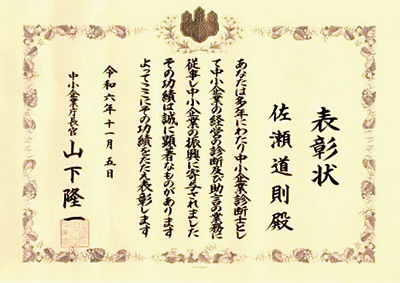 表彰状
佐瀬道則殿
あなたは多年にわたり中小企業診断士とし
て中小企業の経営の診断及び助言の業務に
従事し中小企業の振興に寄与されました
その功績は誠に顕著なものがあります
よってここにその功績をたたえ表彰します
令和六年十一月五日
中小企業庁長官 山下隆一